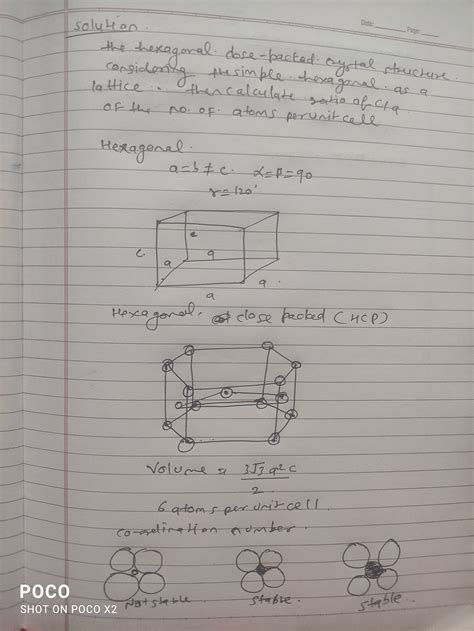 Date Page
Solution
the hexagonal close-packed crystal structure.
considering the simple hexagonal as a
lattice. then calculate ratio of c/a
of the no. of atoms per unit cell
Hexagonal.
a=b≠c. α=β=90
r=120°
c.
c
a
a
a
a
Hexagonal. close packed (HCP)
Volume = 3√3 a²c
2.
6 atoms per unit cell.
co-ordination number.
Not stable
stable.
stable.
POCO
SHOT ON POCO X2